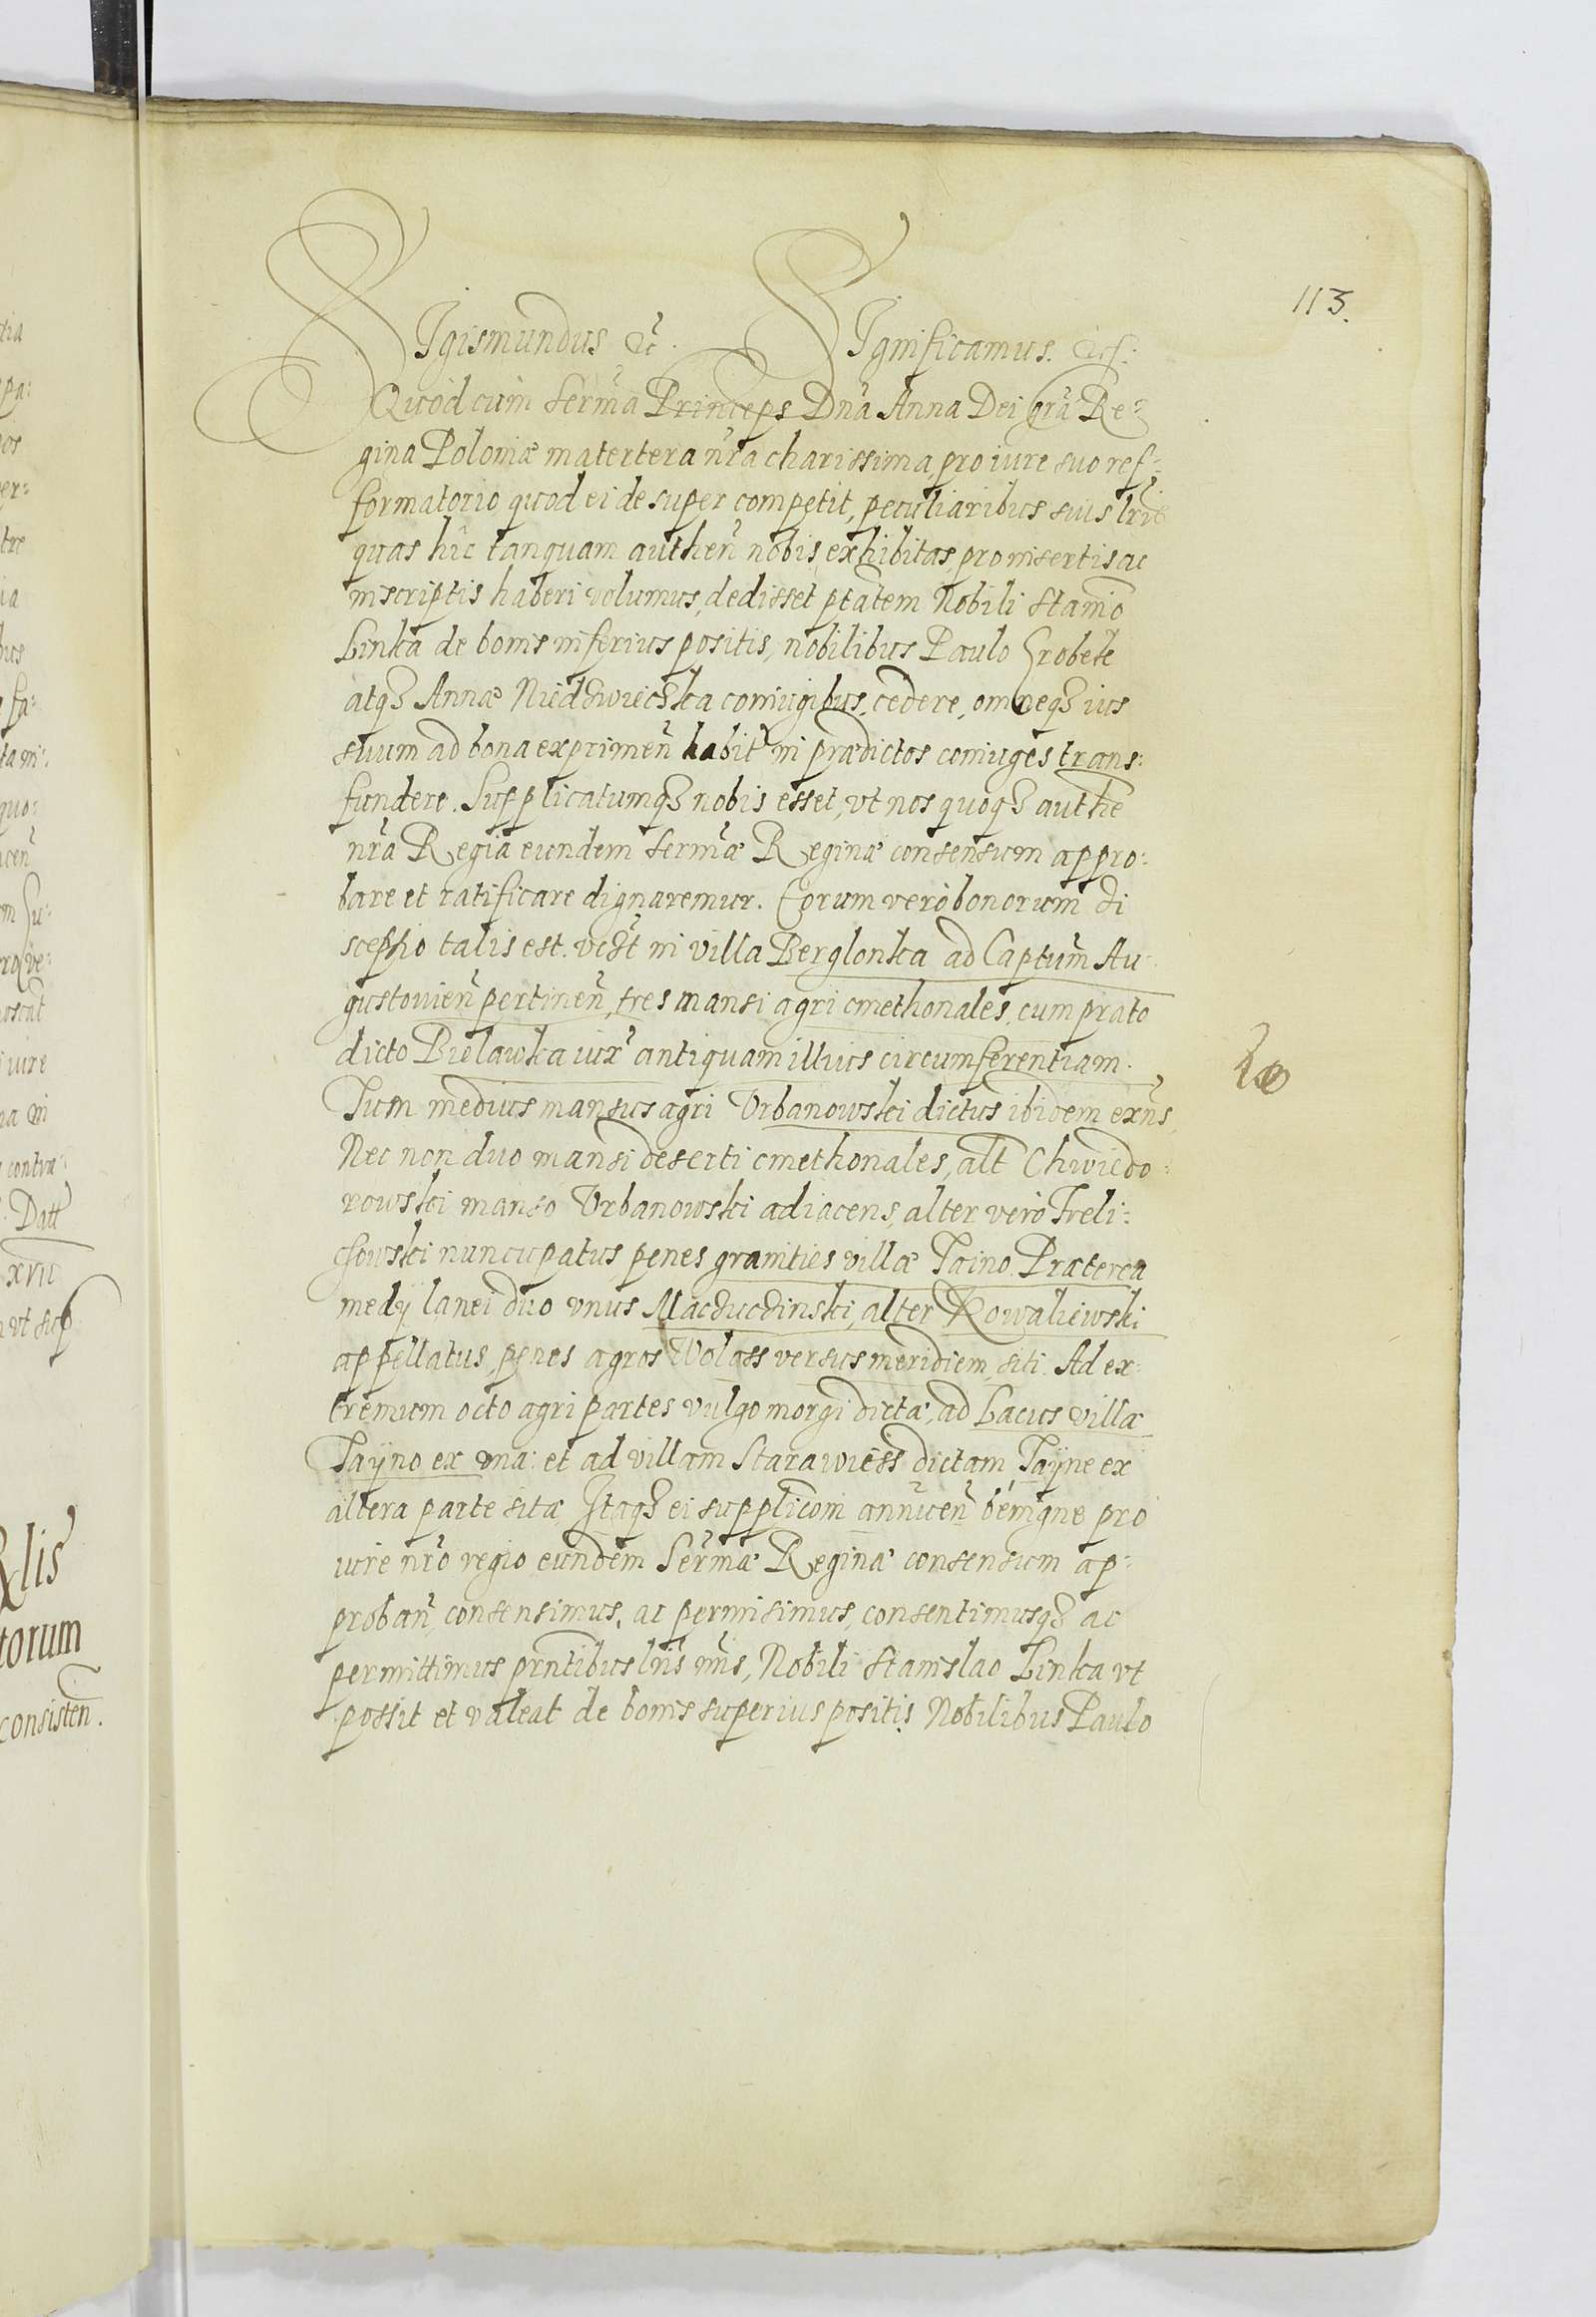 113.
SIgismundus etc. SIgnificamus. etc.
Quod cum Serma Princeps Dna Anna Dei gra Re-
gina Poloniæ matertera nra charissima, pro iure suo ref-
formatorio quod ei desuper competit, peculiaribus suis lris
quas hic tanquam authen nobis exhibitas, pro insertis ac
inscriptis haberi volumus, dedisset ptatem Nobili Stanio
Linka de bonis inferius positis, nobilibus Paulo
atq3 Annæ Niedzwieczka coniugibus, cedere, omneq3 ius
suum ad bona exprimen habit in prædictos coniuges trans:
fundere. Supplicatumq3 nobis esset, vt nos quoq3 authe
nra Regia eundem sermæ Reginæ consensum appro:
bare et ratificare dignaremur. Eorum verò bonorum di
sceptio talis est. vczt in villa Berglonka ad Captum Au-
gustouien pertinen, tres mansi agri cmethonales, cum prato
dicto Bielawka iux antiquam illius circumferentiam.
Tum medius mansus agri Vrbanowski dictus ibidem exns,
Nec non duo mansi deserti cmethonales, alt Chwiedo:
rowski manso Vrbanowski adiacens, alter verò Freli:
chowski nuncupatus, penes granities villæ Taino. Præterea
medij lanei duo vnus Maczuczinski, alter Kowaliewski
appellatus, penes agros Wolass versus meridiem siti. Ad ex:
tremum octo agri partes vulgo morgi dictæ, ad Lacus villæ
Tayno ex vna: et ad villam Starawiess dictam Tayne ex
altera parte sitæ Itaq3 ei suppliconi annuen benigne pro
iure nro regio eundem Sermæ Reginæ consensum ap-
proban, consensimus, ac permisimus, consentimusq3 ac
permittimus prntibus lris nris, Nobili Stanislao Linka vt
possit et valeat de bonis superius positis Nobilibus Paulo